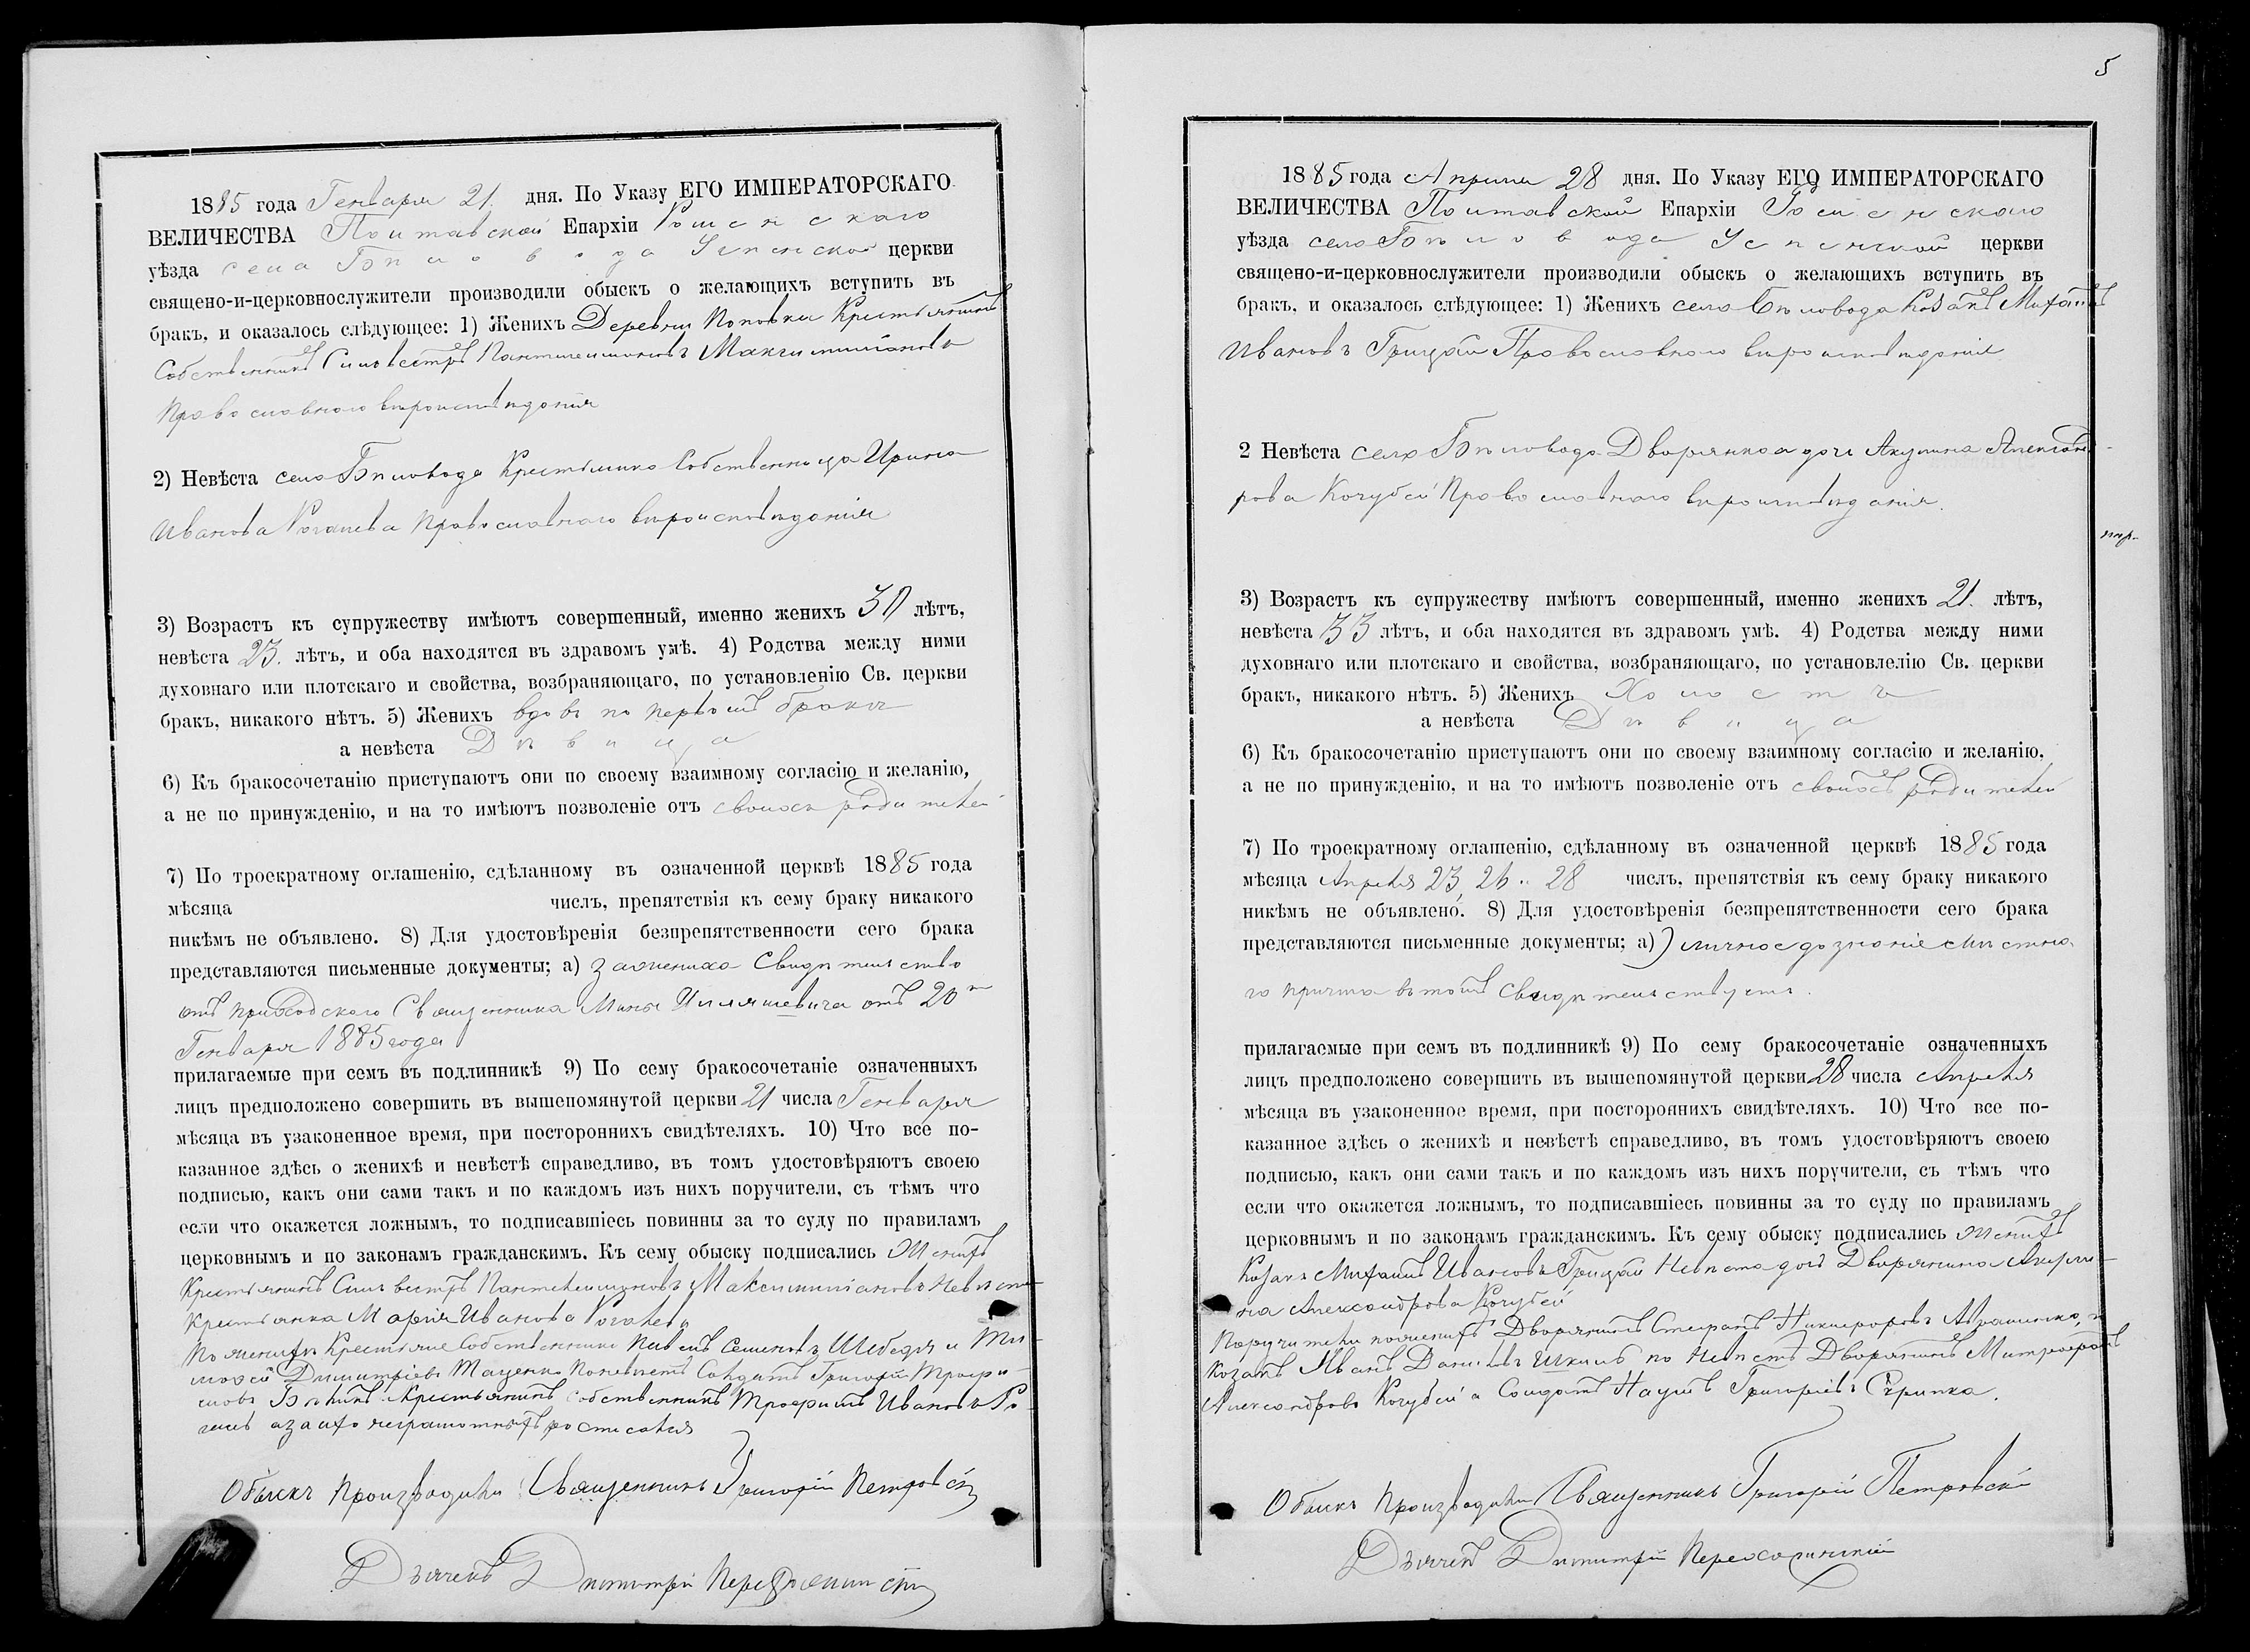 1885 года Генваря 21. дня. По Указу ЕГО ИМПЕРАТОРСКАГО
ВЕЛИЧЕСТВА Полтавской Епархіи Роменскаго
уѣзда села Бѣловода Успенской церкви
священо-и-церковнослужители производили обыскъ о желающихъ вступить въ
бракъ, и оказалось слѣдующее: 1) Женихъ Деревни Поповки Крестьянинъ
Собственникъ Сильвестръ Пантелеимоновъ Максимиліановъ
Православнаго вѣроисповѣданія
2) Невѣста села Бѣловода Крестьянка Собственница Ирина
Иванова Рогачева Православнаго вѣроисповѣданія
3) Возрастъ къ супружеству имѣютъ совершенный, именно женихъ 30 лѣтъ,
невѣста 23. лѣтъ, и оба находятся въ здравомъ умѣ. 4) Родства между ними
духовнаго или плотскаго и свойства, возбраняющаго, по установленію Св. церкви
бракъ, никакого нѣтъ. 5) Женихъ вдовъ по первомъ бракѣ
а невѣста Дѣвица
6) Къ бракосочетанію приступаютъ они по своему взаимному согласію и желанію,
а не по принужденію, и на то имѣютъ позволеніе отъ своихъ родителей
7) По троекратному оглашенію, сдѣланному въ означенной церквѣ 1885 года
мѣсяца числъ, препятствія къ сему браку никакого
никѣмъ не объявлено. 8) Для удостовѣренія безпрепятственности сего брака
представляются письменные документы; а) за жениха Свидѣтельство
отъ приходскаго Священника отъ 20го
Генваря 1885 года
прилагаемые при семъ въ подлинникѣ 9) По сему бракосочетаніе означенныхъ
лицъ предположено совершить въ вышепомянутой церкви 21 числа Генваря
мѣсяца въ узаконенное время, при постороннихъ свидѣтеляхъ. 10) Что все по-
казанное здѣсь о женихѣ и невѣстѣ справедливо, въ томъ удостовѣряютъ своею
подписью, какъ они сами такъ и по каждомъ изъ нихъ поручители, съ тѣмъ что
если что окажется ложнымъ, то подписавшіесь повинны за то суду по правиламъ
церковнымъ и по законамъ гражданскимъ. Къ сему обыску подписались Женихъ
Крестьянинъ Сильвестръ Пантелеимоновъ Максимиліановъ Невѣста
Крестьянка Марія Иванова Рогачева
По женихѣ Крестьяне Собственники Павелъ Семеновъ Шебедя и Ти-
мофей Димитріевъ Таценко По невѣстѣ Солдатъ Григорій Трофи-
мовъ Крестьянинъ Собственникъ Трофимъ Ивановъ Ро-
а за ихъ неграмотныхъ росписался
Обыскъ производили Священникъ Григорій Петровскій
Дьячекъ Димитрій
5
1885 года Апрѣля 28 дня. По Указу ЕГО ИМПЕРАТОРСКАГО
ВЕЛИЧЕСТВА Полтавской Епархіи Роменскаго
уѣзда села Бѣловода Успенской церкви
священо-и-церковнослужители производили обыскъ о желающихъ вступить въ
бракъ, и оказалось слѣдующее: 1) Женихъ села Бѣловода Козакъ Михаилъ
Ивановъ Грицай Православнаго вѣроисповѣданія
2 Невѣста села Бѣловода Дворянка дочь Акулина Александ-
рова Кочубей Православнаго вѣроисповѣданія.
3) Возрастъ къ супружеству имѣютъ совершенный, именно женихъ 21. лѣтъ,
невѣста 33 лѣтъ, и оба находятся въ здравомъ умѣ. 4) Родства между ними
духовнаго или плотскаго и свойства, возбраняющаго, по установлелію Св. церкви
бракъ, никакого нѣтъ. 5) Женихъ Холостъ
а невѣста Дѣвица
6) Къ бракосочетанію приступаютъ они по своему взаимному согласію и желанію,
а не по принужденію, и на то имѣютъ позволеніе отъ своихъ родителей
7) По троекратному оглашенію, сдѣланному въ означенной церквѣ 1885 года
мѣсяца Апрѣля 23, 26 и 28 числъ, препятствія къ сему браку никакого
никѣмъ не объявлено. 8) Для удостовѣренія безпрепятственности сего брака
представляются письменные документы; а) личное дознаніе мѣстна-
го причта въ томъ свидѣтельствуетъ.
прилагаемые при семъ въ подлинникѣ 9) По сему бракосочетаніе означенныхъ
лицъ предположено совершить въ вышепомянутой церкви 28 числа Апрѣля
мѣсяца въ узаконенное время, при постороннихъ свидѣтеляхъ. 10) Что все по-
казанное здѣсь о женихѣ и невѣстѣ справедливо, въ томъ удостовѣряютъ своею
подписью, какъ они сами такъ и по каждомъ изъ нихъ поручители, съ тѣмъ что
если что окажется ложнымъ, то подписавшіесь повинны за то суду по правиламъ
церковнымъ и по законамъ гражданскимъ. Къ сему обыску подписались Женихъ
Козакъ Михаилъ Ивановъ Грицай Невѣста дочь Дворянина Акули-
на Александрова Кочубей
Поручители по женихѣ Дворянинъ Стефанъ Никифоровъ и
козакъ Иванъ Даниловъ по невѣстѣ Дворянинъ Митрофанъ
Александровъ Кочубей и Солдатъ Наумъ Григоріевъ Скрипка.
Обыскъ производили Священникъ Григорій Петровскій
Дьячекъ Димитрій